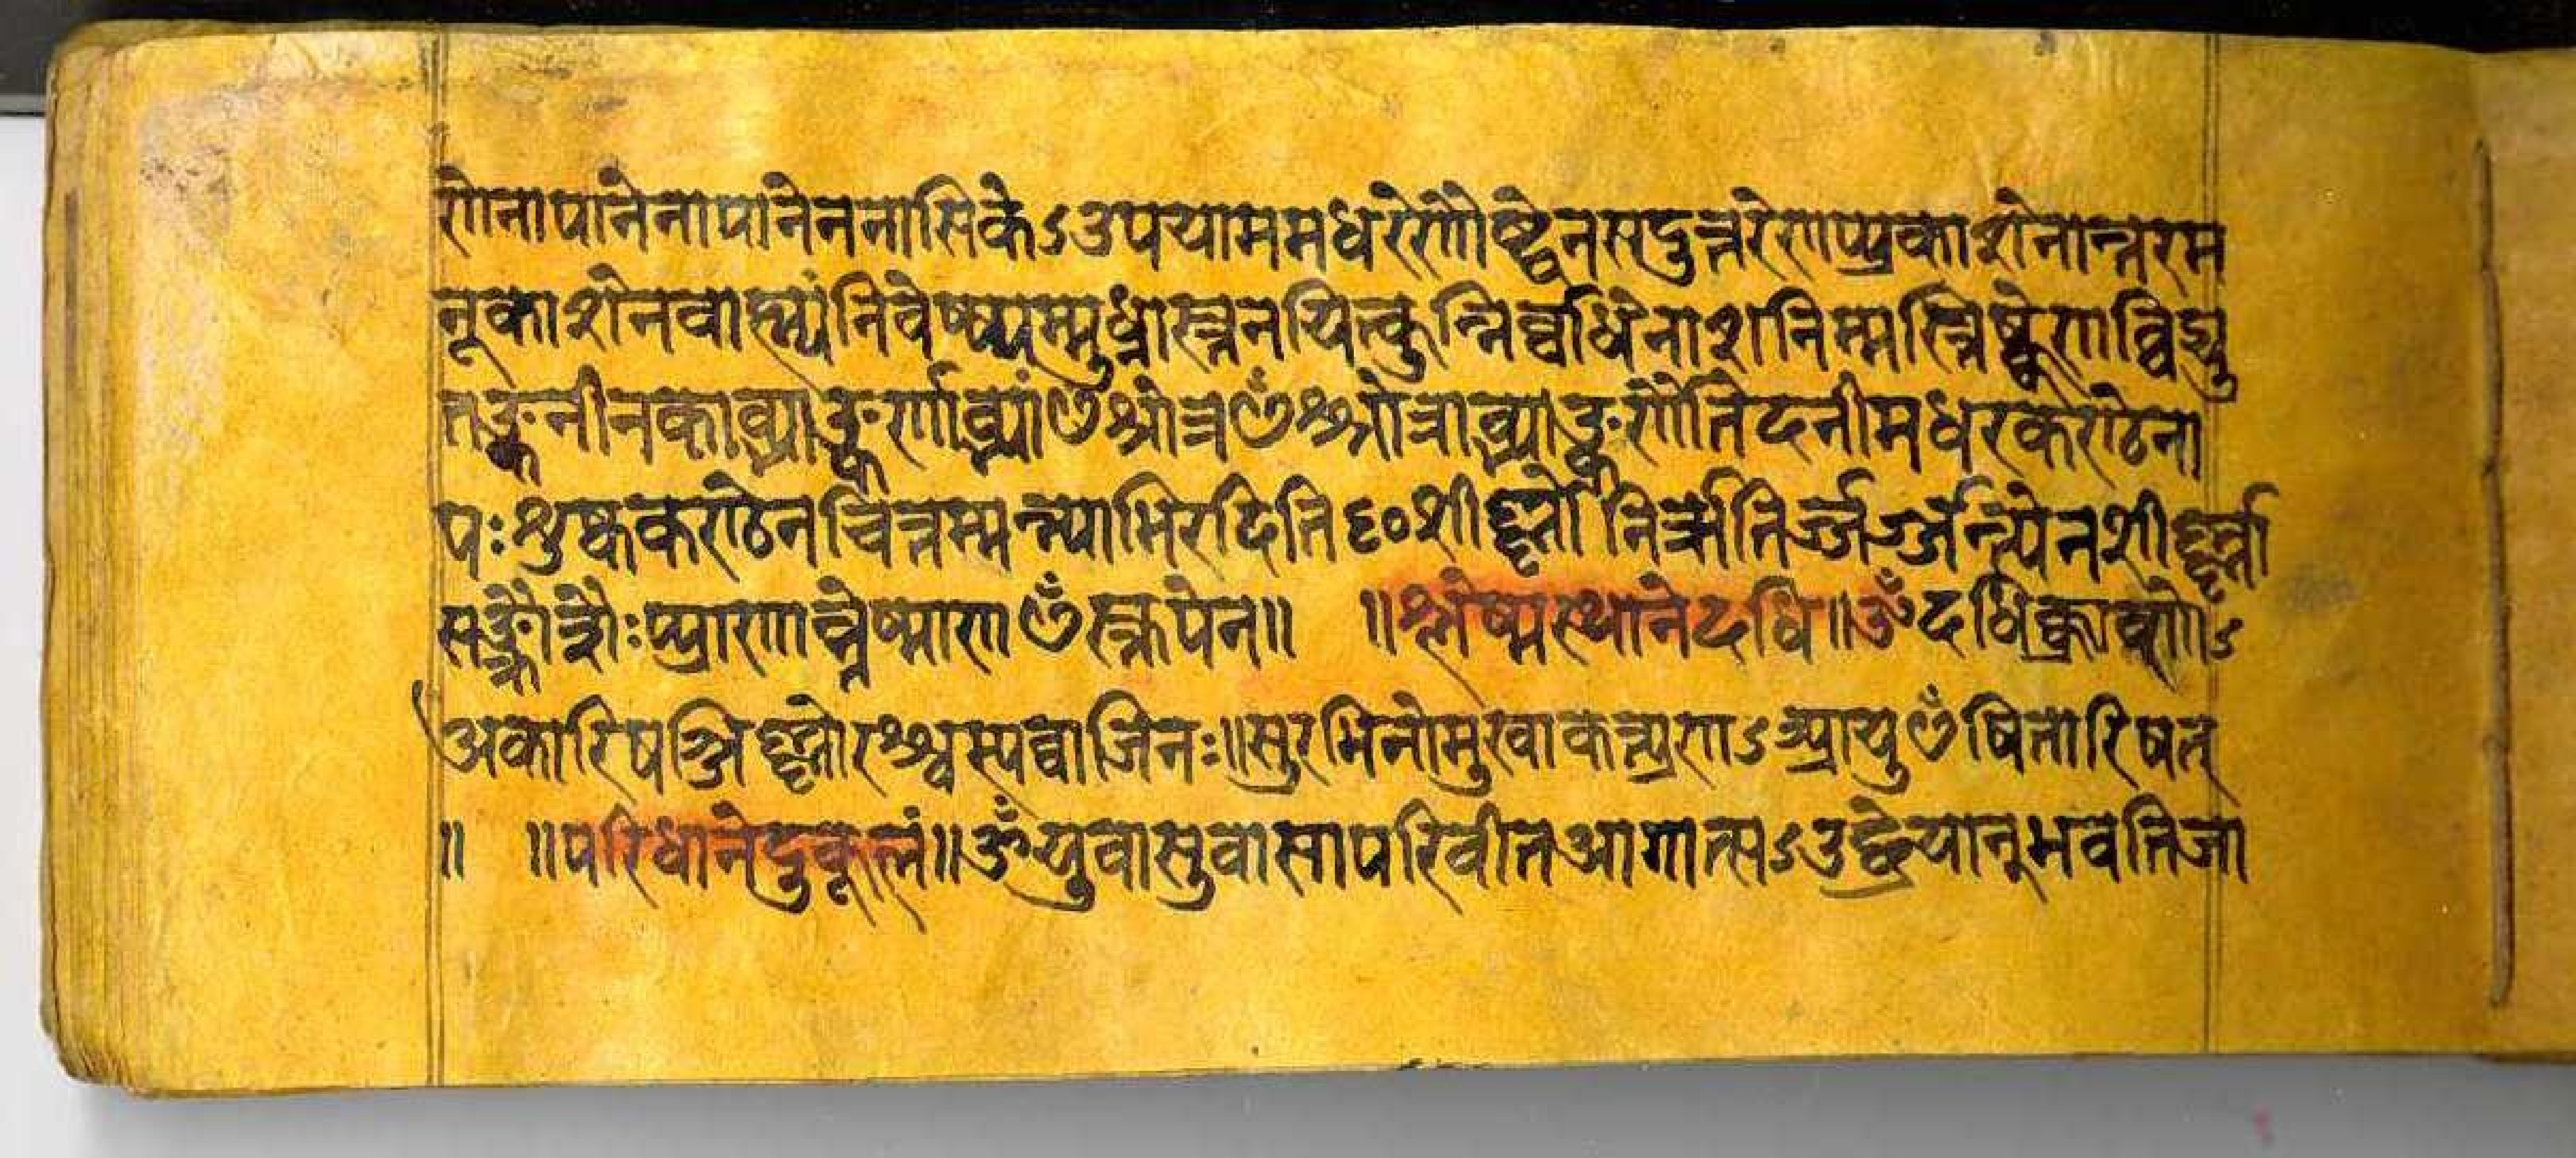 णेनापानेनापानेननासिकेऽउपयाममधरेणौष्ट्ठेनसदुत्तरेणप्प्रकाशेनान्तरम
नूकाशेनवाह्यंनिवेष्ष्यम्मुर्ध्नास्त्तनयित्क्नुन्निर्व्वाधेनाशनिम्मस्त्तिष्क्केणव्विद्यु
तङ्कनीनकाब्भ्याङ्कर्णाब्भ्यांꣳश्रोत्रꣳश्श्रोत्राब्भ्याङ्कर्णौतेदनीमधरकण्ठेना
पःशुष्ककण्ठेनचित्तम्मन्न्याभिरदितिꣳशीर्ष्ण्णानिर्ऋतिर्न्निर्ज्जर्ज्जल्प्येनशीर्ष्ण्णा
सङ्क्रोशैःप्प्राणान्नेष्माणꣳस्तूपेन॥ ॥श्लेष्मस्थानेदधि॥ॐदधिक्राव्णोऽ
अकारिषञ्जिष्ण्णोरश्श्वस्यव्वाजिनः॥सुरभिनोमुखाकरत्प्रणऽआयुꣳषितारिषत्
॥ ॥परिधानेदुकूलं॥ॐयुवासुवासापरिवीतआगात्सऽउश्श्रेयान्भवतिजा